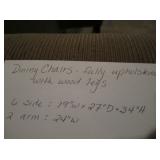 Dining Chairs - fully upholstered
with wood legs
6 side : 19"W x 27"D x 34"H
2 arm : 24"W